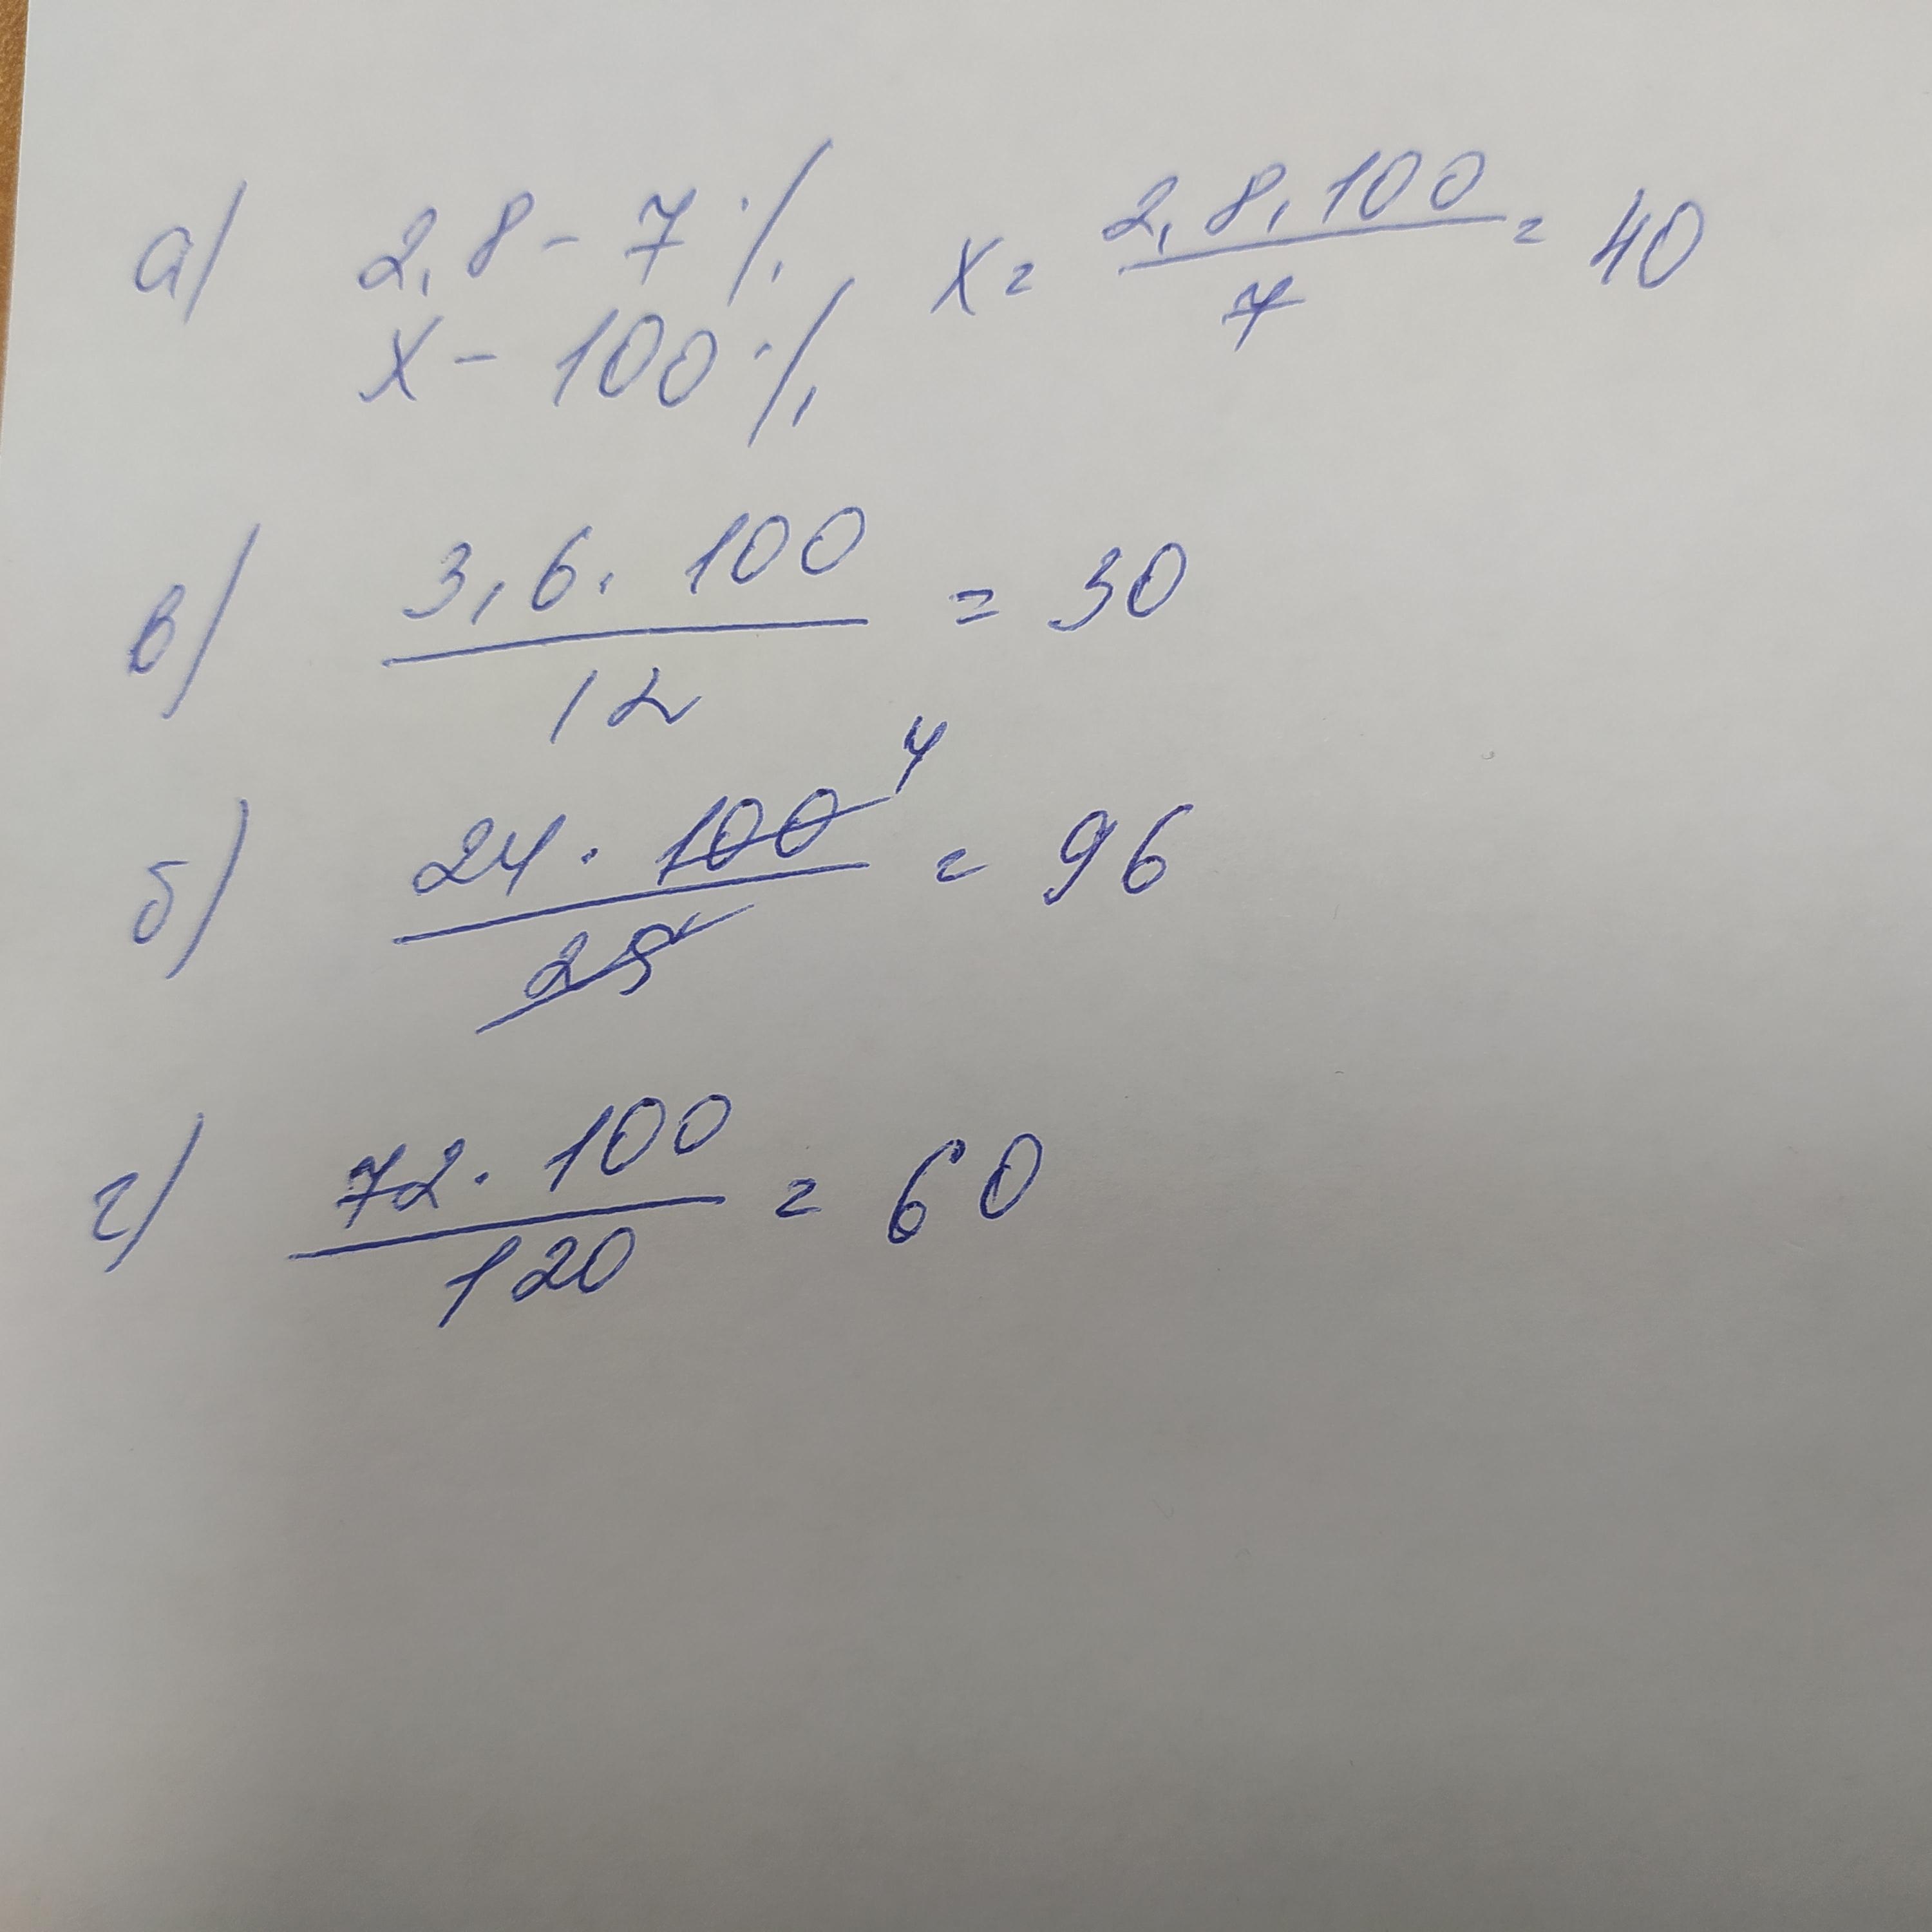 а) 2,8 - 7 % x = 2,8 · 100 / 7 = 40
x - 100 %
в) 3,6 · 100 / 12 = 30
б) 24 · 100 4 / 25 = 96
г) 72 · 100 / 120 = 60